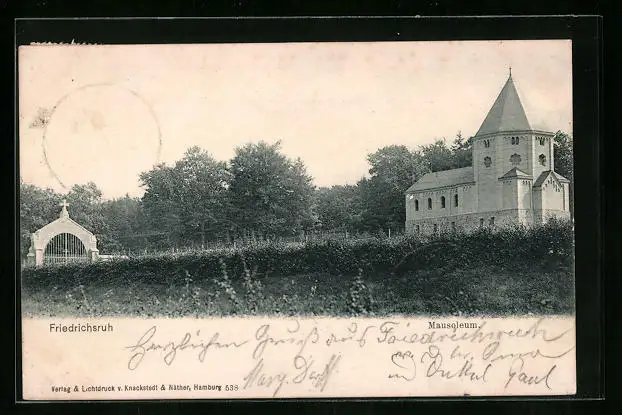 Friedrichsruh
Mausoleum.
Herzlichen Gruß aus Friedrichsruh
u. Onkel Paul
Verlag & Lichtdruck v. Knackstedt & Näther, Hamburg 538